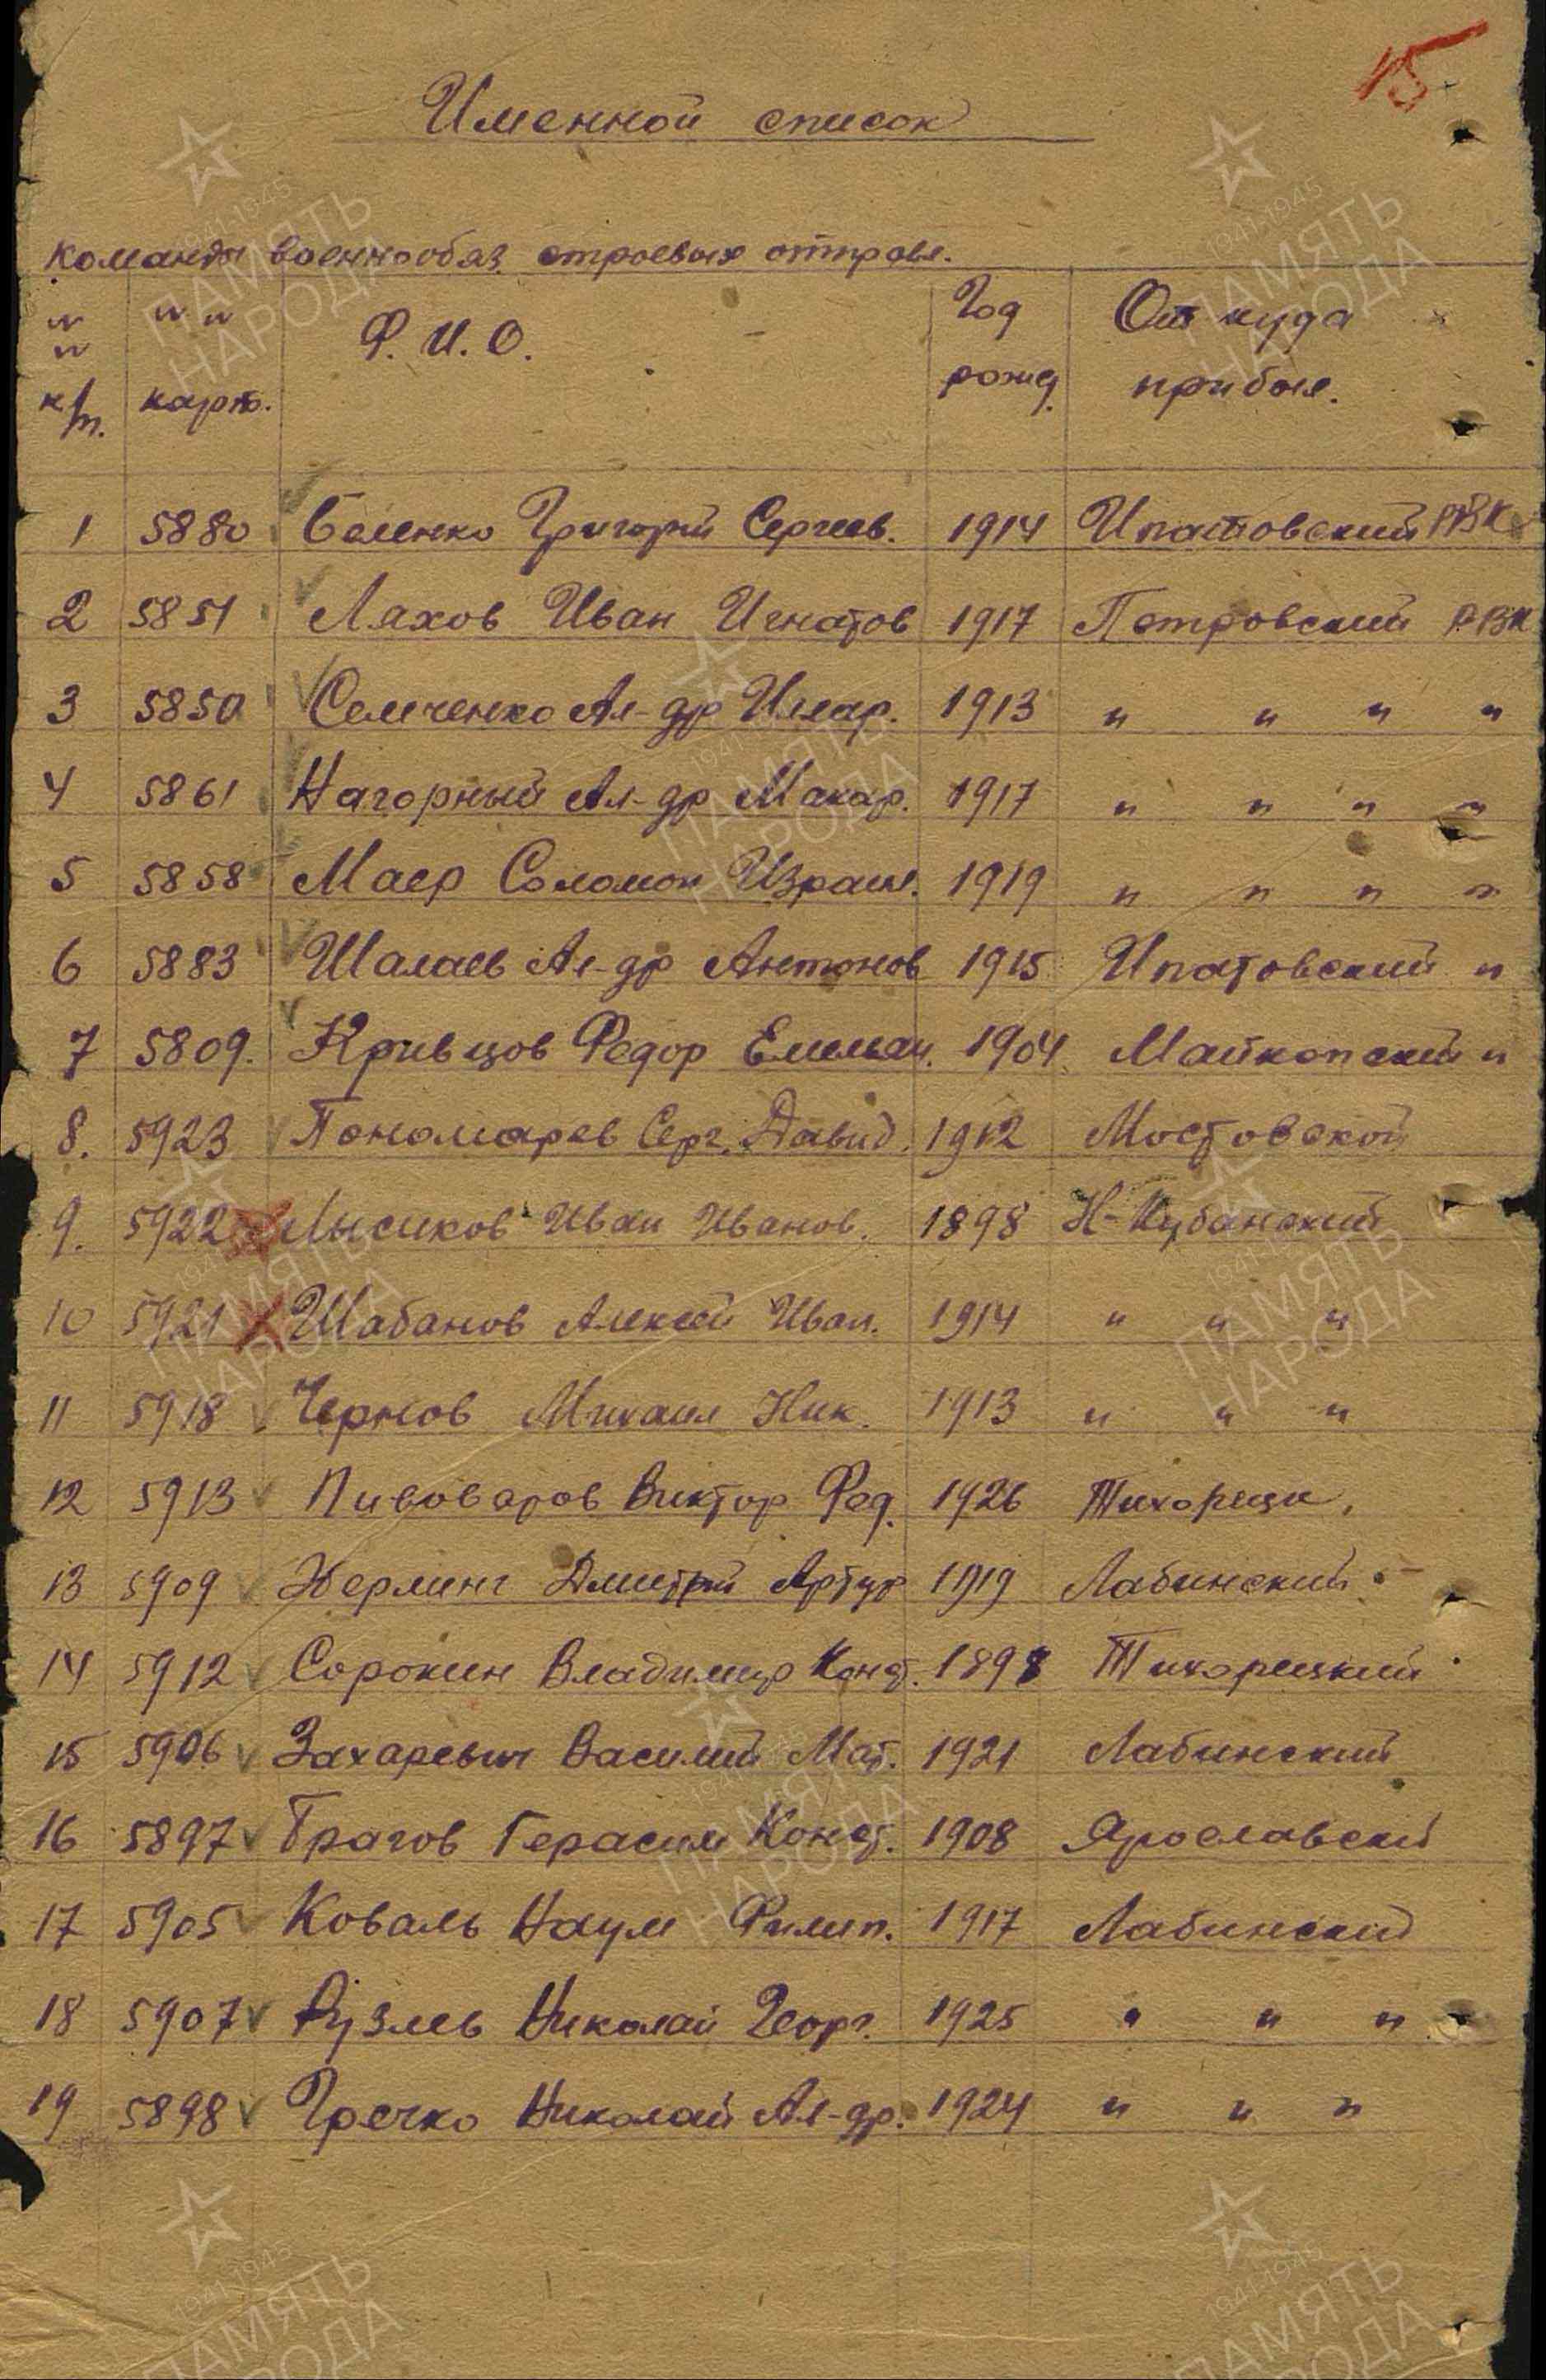 15
Именной список
команды военнообяз. строевых отправл.
№ № п/п. № № карт. Ф. И. О. Год рожд. От куда прибыл.
1 5880 Беленко Григорий Сергеев. 1914 Ипатовский РВК
2 5851 Ляхов Иван Игнатов 1917 Петровский РВК
3 5850 Семченко Ал-др Илар. 1913 " " " "
4 5861 Нагорный Ал-др Макар. 1917 " " " "
5 5858 Маер Соломон Израил. 1919 " " " "
6 5883 Шалаев Ал-др Антонов 1915 Ипатовский "
7 5809. Кривцов Федор Емельян. 1904 Майкопский "
8. 5923 Пономарев Серг. Давид. 1912 Мостовской
9. 5922 Лысиков Иван Иванов. 1898 Н-Кубанский
10 5921 Шабанов Алексей Иван. 1914 " " "
11 5918 Чернов Михаил Ник. 1913 " " "
12 5913 Пивоваров Виктор Фед. 1926 Тихорецк.
13 5909 Эберлинг Дмитрий Артур 1919 Лабинский
14 5912 Сорокин Владимир Конст. 1898 Тихорецкий
15 5906 Захаревич Василий Мат. 1921 Лабинский
16 5897 Брагов Герасим Конст. 1908 Ярославский
17 5905 Коваль Наум Филип. 1917 Лабинский
18 5907 Николай Георг. 1925 " " "
19 5898 Гречко Николай Ал-др. 1924 " " "
1941-1945
ПАМЯТЬ
НАРОДА